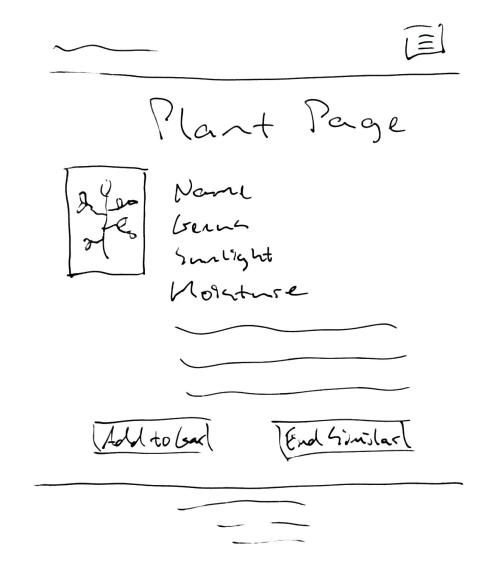 Plant Page
Name
Genus
Sunlight
Moisture
Add to
Similar